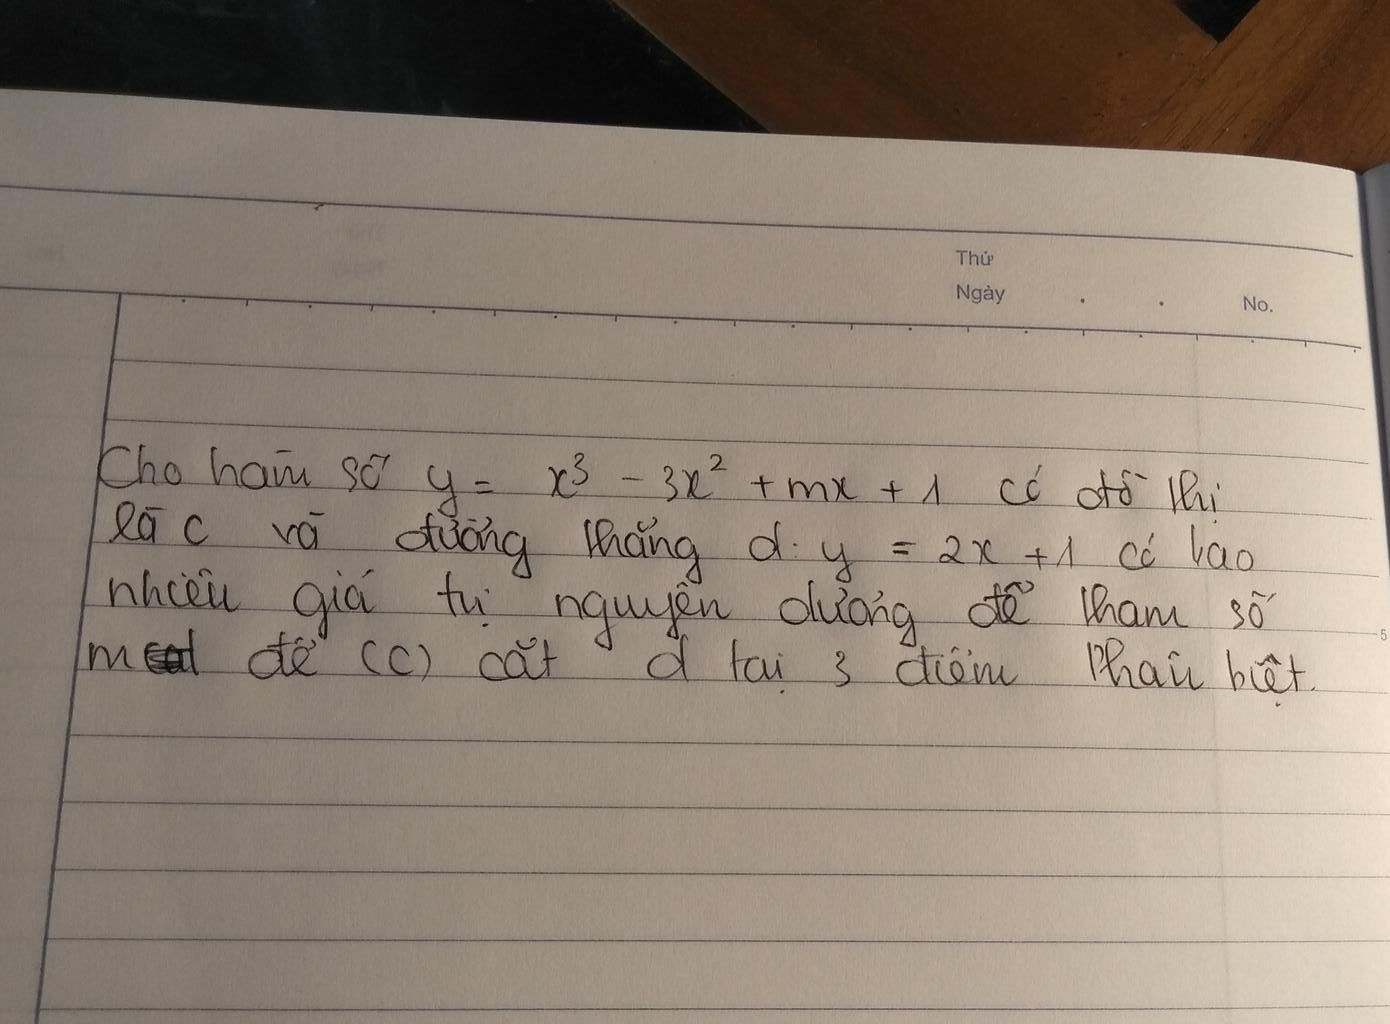 Thứ
Ngày . . No.
Cho hàm số y = x³ - 3x² + mx + 1 có đồ thị
là C và đường thẳng d: y = 2x + 1 có bao
nhiêu giá trị nguyên dương để tham số
m để (C) cắt d tại 3 điểm phân biệt.
5